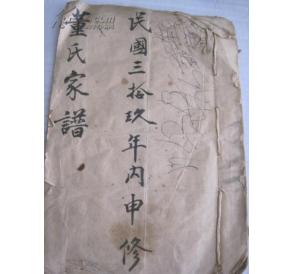 民國三拾玖年丙申修
董氏家譜